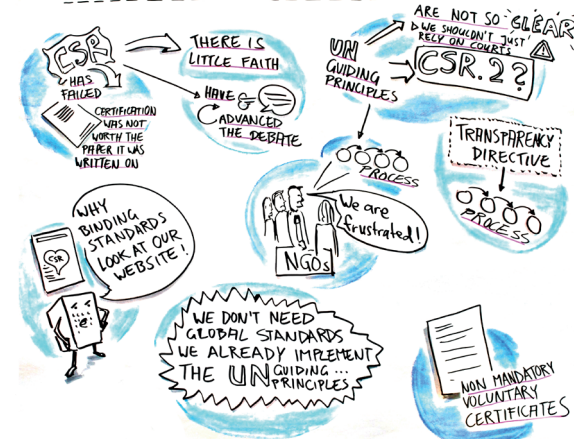 CSR
HAS
FAILED
CERTIFICATION
WAS NOT
WORTH THE
PAPER IT WAS
WRITTEN ON
THERE IS
LITTLE FAITH
HAVE &
ADVANCED
THE DEBATE
UN
GUIDING
PRINCIPLES
ARE NOT SO CLEAR
WE SHOULDN'T JUST
RELY ON COURTS
!
CSR.2?
PROCESS
TRANSPARENCY
DIRECTIVE
PROCESS
WHY
BINDING
STANDARDS
LOOK AT OUR
WEBSITE!
CSR
We are
frustrated!
NGOs
WE DON'T NEED
GLOBAL STANDARDS
WE ALREADY IMPLEMENT
THE UN GUIDING ...
PRINCIPLES
NON MANDATORY
VOLUNTARY
CERTIFICATES